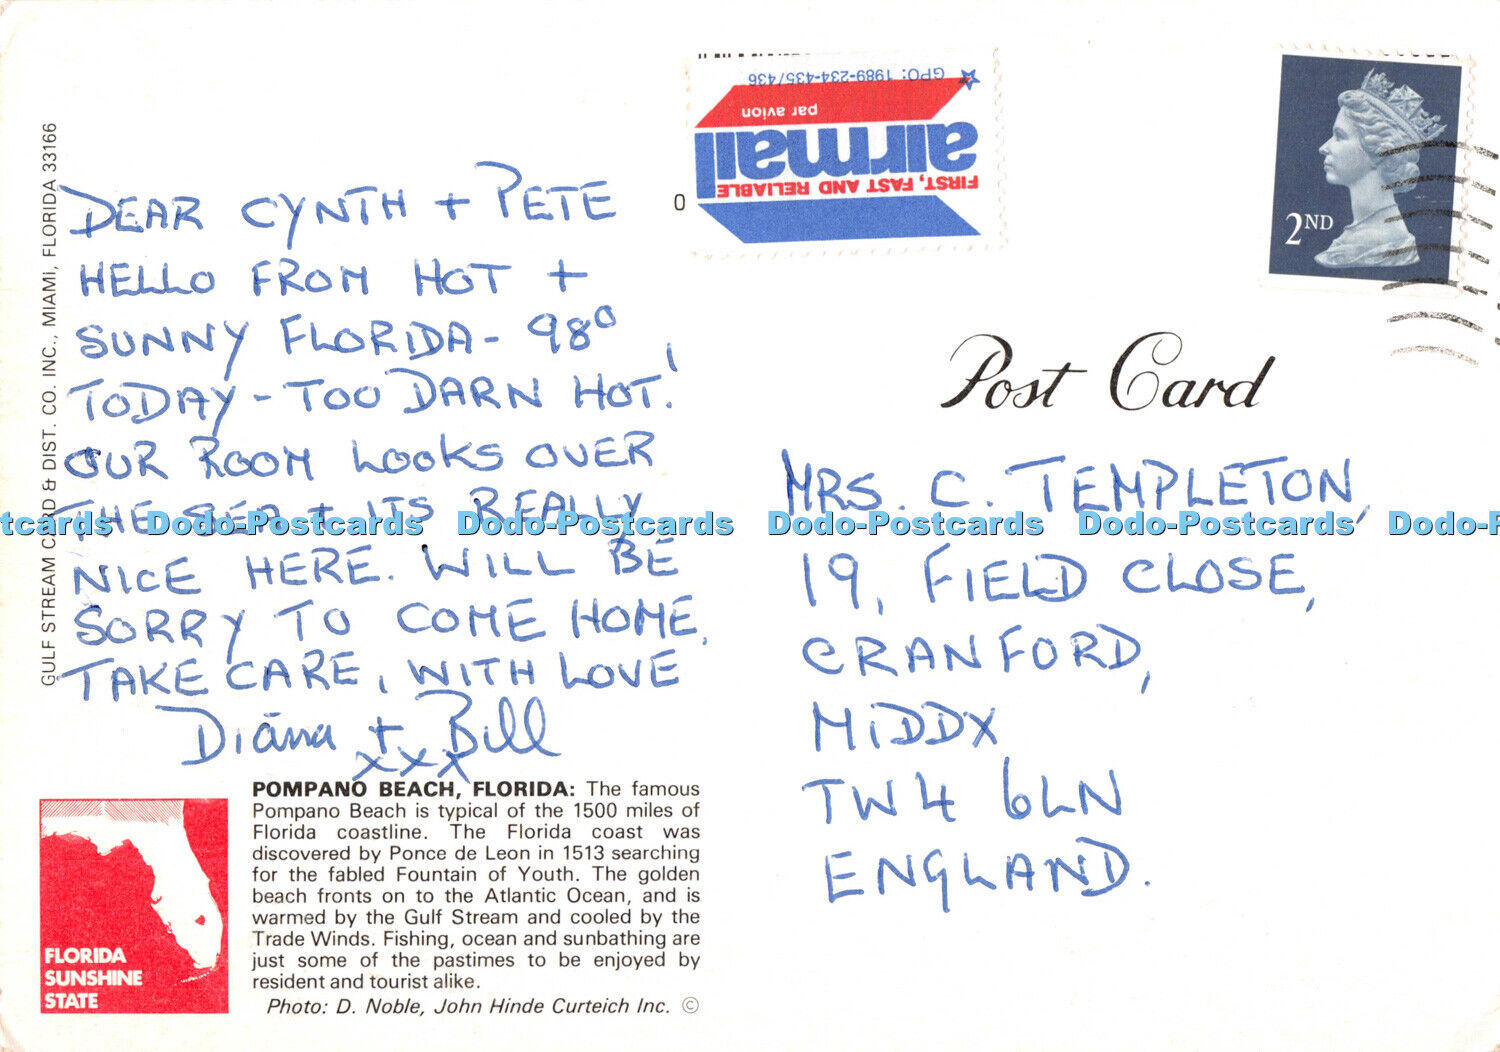 GULF STREAM CARD & DIST. CO. INC., MIAMI, FLORIDA 33166
DEAR CYNTH + PETE
HELLO FROM HOT +
SUNNY FLORIDA - 98°
TODAY - TOO DARN HOT!
OUR ROOM LOOKS OVER
THE SEA + ITS REALLY
NICE HERE. WILL BE
SORRY TO COME HOME,
TAKE CARE, WITH LOVE
Diana + Bill
xxx
POMPANO BEACH, FLORIDA: The famous
Pompano Beach is typical of the 1500 miles of
Florida coastline. The Florida coast was
discovered by Ponce de Leon in 1513 searching
for the fabled Fountain of Youth. The golden
beach fronts on to the Atlantic Ocean, and is
warmed by the Gulf Stream and cooled by the
Trade Winds. Fishing, ocean and sunbathing are
just some of the pastimes to be enjoyed by
resident and tourist alike.
Photo: D. Noble, John Hinde Curteich Inc. ©
FLORIDA
SUNSHINE
STATE
FIRST, FAST AND RELIABLE
airmail
par avion
GPO: 1989-234-435/436
0
2ND
Post Card
MRS. C. TEMPLETON,
19, FIELD CLOSE,
CRANFORD,
MIDDX
TW4 6LN
ENGLAND.
ostcards Dodo-Postcards Dodo-Postcards Dodo-Postcards Dodo-Postcards Dodo-P